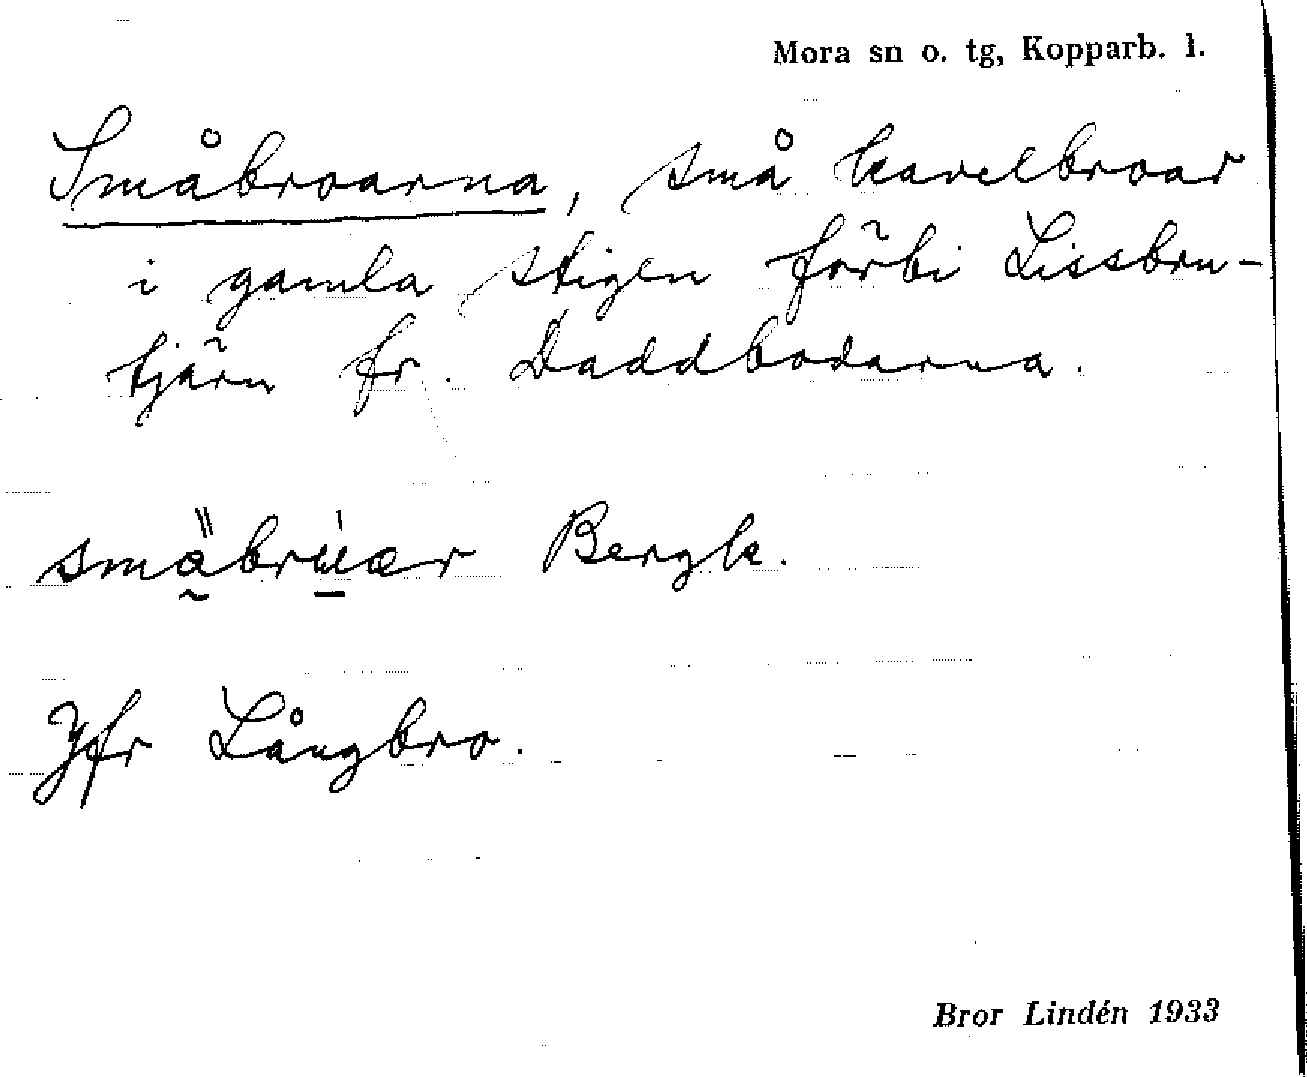 Mora sn o. tg, Kopparb. l.
Småbroarna, små kavelbroar
i gamla stigen förbi Lissbru-
tjärn fr. Daddbodarna.
smäbrùær Bergk.
Jfr Långbro.
Bror Lindén 1933